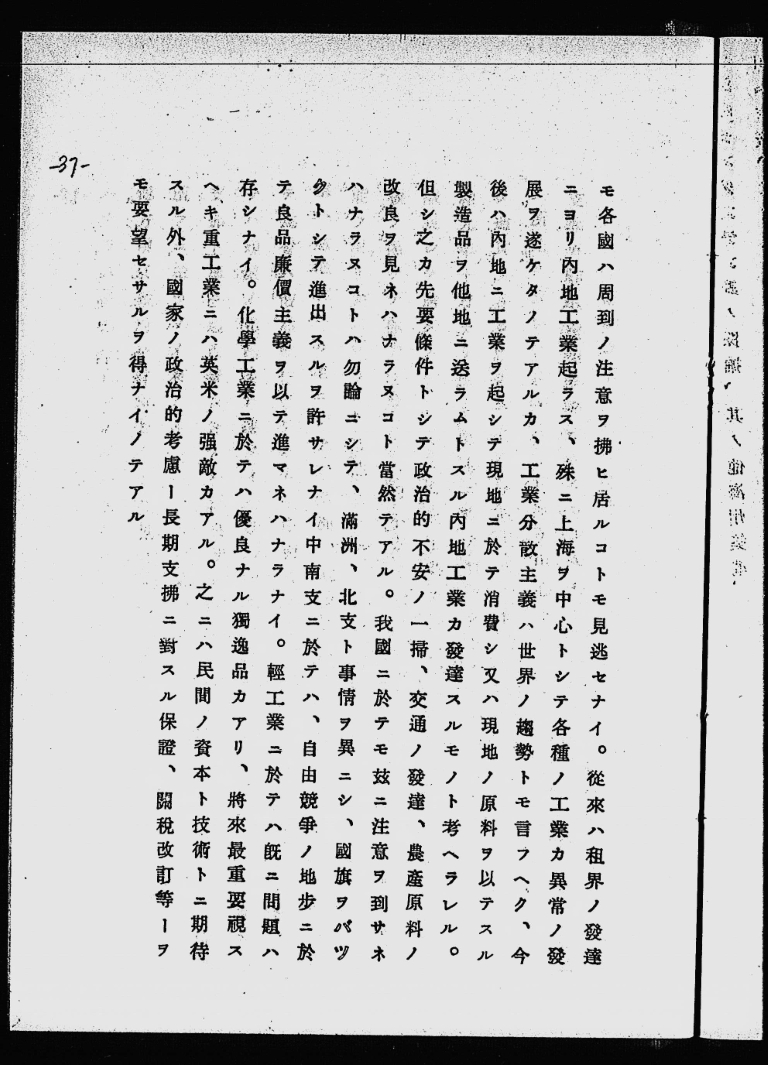 モ各國ハ周到ノ注意ヲ拂ヒ居ルコトモ見逃セナイ。從來ハ租界ノ發達
ニヨリ內地工業起ラス、殊ニ上海ヲ中心トシテ各種ノ工業カ異常ノ發
展ヲ遂ケタノテアルカ、工業分散主義ハ世界ノ趨勢トモ言フヘク、今
後ハ內地ニ工業ヲ起シテ現地ニ於テ消費シ又ハ現地ノ原料ヲ以テスル
製造品ヲ他地ニ送ラムトスル內地工業カ發達スルモノト考ヘラレル。
但シ之カ先要條件トシテ政治的不安ノ一掃、交通ノ發達、農產原料ノ
改良ヲ見ネハナラヌコト當然テアル。我國ニ於テモ玆ニ注意ヲ到サネ
ハナラヌコトハ勿論ニシテ、滿洲、北支ト事情ヲ異ニシ、國旗ヲバツ
クトシテ進出スルヲ許サレナイ中南支ニ於テハ、自由競爭ノ地步ニ於
テ良品廉價主義ヲ以テ進マネハナラナイ。輕工業ニ於テハ旣ニ問題ハ
存シナイ。化學工業ニ於テハ優良ナル獨逸品カアリ、將來最重要視ス
ヘキ重工業ニハ英米ノ强敵カアル。之ニハ民間ノ資本ト技術トニ期待
スル外、國家ノ政治的考慮ー長期支拂ニ對スル保證、關稅改訂等ーヲ
モ要望セサルヲ得ナイノテアル
-37-